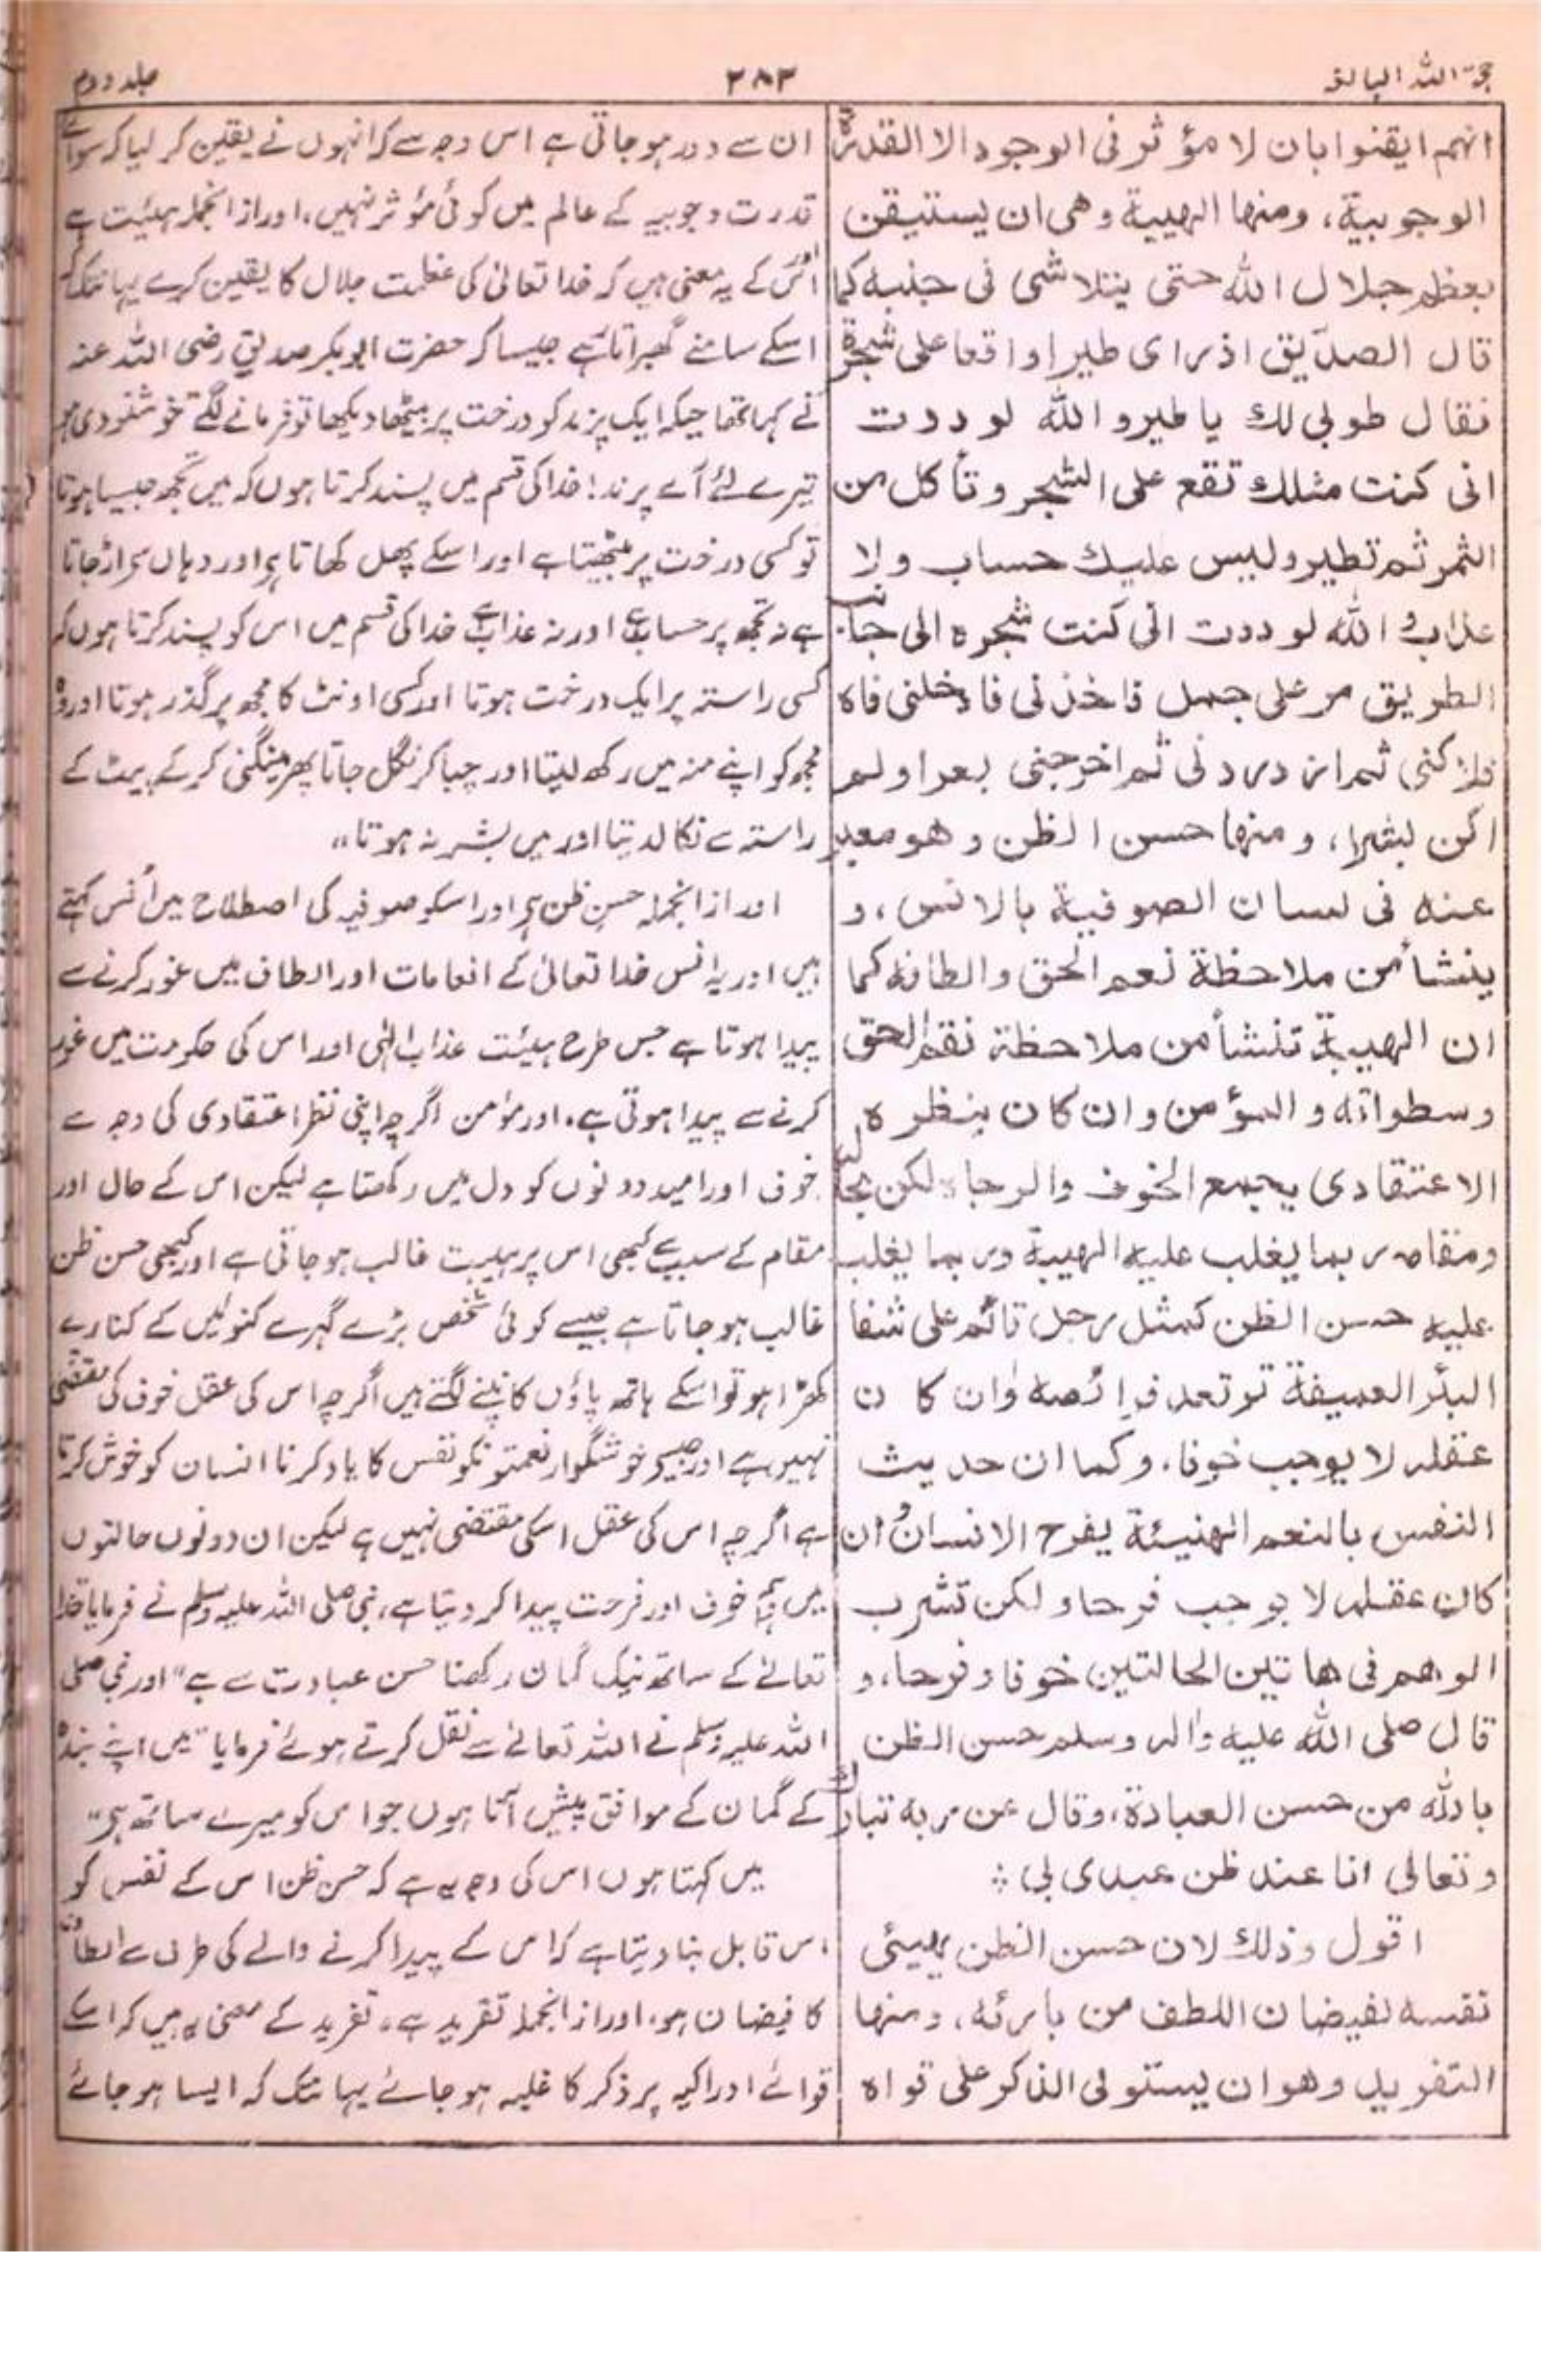 حجۃ اللہ البالغہ
۲۸۳
جلد دوم
انهم ايقنوا بان لا مؤثر فى الوجود الا القدرة
الوجوبية، ومنها الهيبة وهى ان يستيقن
بعظم جلال الله حتى يتلاشى فى جنبه كما
قال الصديق اذ رأى طيرا واقعا على شجرة
فقال طوبى لك يا طير والله لوددت
انى كنت مثلك تقع على الشجر وتأكل من
الثمر ثم تطير وليس عليك حساب ولا
عذاب والله لوددت انى كنت شجرة الى جانب
الطريق مر على جمل فاخذنى فادخلنى فاه
فلاكنى ثم ازدردنى ثم اخرجنى بعرا ولم
اكن بشرا، ومنها حسن الظن وهو معبر
عنه فى لسان الصوفية بالانس، و
ينشأ من ملاحظة نعم الحق والطافه كما
ان الهيبة تنشأ من ملاحظة نقم الحق
وسطواته والمؤمن وان كان بنظره
الاعتقادى يجمع الخوف والرجاء لكن بحاله
ومقامه ربما يغلب عليه الهيبة وربما يغلب
عليه حسن الظن كمثل رجل قائم على شفا
البئر العميقة ترتعد فرائصه وان كان
عقله لا يوجب خوفا، وكما ان حديث
النفس بالنعم الهنيئة يفرح الانسان وان
كان عقله لا يوجب فرحا ولكن تشرب
الوهم فى هاتين الحالتين خوفا وفرحا، و
قال صلى الله عليه واله وسلم حسن الظن
بالله من حسن العبادة، وقال عن ربه تبارك
وتعالى انا عند ظن عبدى بى ؞
اقول وذلك لان حسن الظن يهيئ
نفسه لفيضان اللطف من بارئه، ومنها
التفريد وهو ان يستولى الذكر على قواه
ان سے دور ہو جاتی ہے اس وجہ سے کہ انہوں نے یقین کر لیا کہ سوائے
قدرت وجوبیہ کے عالم میں کوئی مؤثر نہیں، اور ازانجملہ ہیئت ہے
اور اس کے یہ معنی ہیں کہ خدا تعالیٰ کی عظمت جلال کا یقین کرے یہانتک کہ
اسکے سامنے گھبراتا ہے جیسا کہ حضرت ابوبکر صدیق رضی اللہ عنہ
نے کہا تھا جبکہ ایک پرند کو درخت پر بیٹھا دیکھا تو فرمانے لگے خوشنودی ہو
تیرے لئے اے پرند! خدا کی قسم میں پسند کرتا ہوں کہ میں تجھ جیسا ہوتا
تو کسی درخت پر بیٹھتا ہے اور اسکے پھل کھاتا ہے اور وہاں سے اڑ جاتا
ہے نہ تجھ پر حساب ہے اور نہ عذاب ہے خدا کی قسم میں اس کو پسند کرتا ہوں کہ
کسی راستہ پر ایک درخت ہوتا اور کسی اونٹ کا مجھ پر گذر ہوتا اور وہ
مجھ کو اپنے منہ میں رکھ لیتا اور چبا کر نگل جاتا پھر مینگنی کر کے پیٹ کے
راستہ سے نکال دیتا اور میں بشر نہ ہوتا"
اور ازانجملہ حسن ظن ہے اور اسکو صوفیہ کی اصطلاح میں اُنس کہتے
ہیں اور یہ انس خدا تعالیٰ کے انعامات اور الطاف میں غور کرنے سے
پیدا ہوتا ہے جس طرح ہیئت عذاب الٰہی اور اس کی حکومت میں غور
کرنے سے پیدا ہوتی ہے، اور مومن اگرچہ اپنی نظر اعتقادی کی وجہ سے
خوف اور امید دونوں کو دل میں رکھتا ہے لیکن اس کے حال اور
مقام کے سبب سے کبھی اس پر ہیبت غالب ہو جاتی ہے اور کبھی حسن ظن
غالب ہو جاتا ہے جیسے کوئی شخص بڑے گہرے کنوئیں کے کنارے
کھڑا ہو تو اسکے ہاتھ پاؤں کانپنے لگتے ہیں اگرچہ اس کی عقل خوف کی مقتضی
نہیں ہے اور جیسے خوشگوار نعمتونکو نفس کا یاد کرنا انسان کو خوش کرتا
ہے اگرچہ اس کی عقل اسکی مقتضی نہیں ہے لیکن ان دونوں حالتوں
میں وہم خوف اور فرحت پیدا کر دیتا ہے، نبی صلی اللہ علیہ وسلم نے فرمایا خدا
تعالے کے ساتھ نیک گمان رکھنا حسن عبادت سے ہے" اور نبی صلی
اللہ علیہ وسلم نے اللہ تعالے سے نقل کرتے ہوئے فرمایا "میں اپنے بندہ
کے گمان کے موافق پیش آتا ہوں جو اس کو میرے ساتھ ہے"
میں کہتا ہوں اس کی وجہ یہ ہے کہ حسن ظن اس کے نفس کو
اس قابل بنا دیتا ہے کہ اس کے پیدا کرنے والے کی طرف سے الطاف
کا فیضان ہو، اور ازانجملہ تفرید ہے، تفرید کے معنی یہ ہیں کہ اسکے
قوائے ادراکیہ پر ذکر کا غلبہ ہو جائے یہانتک کہ ایسا ہو جائے